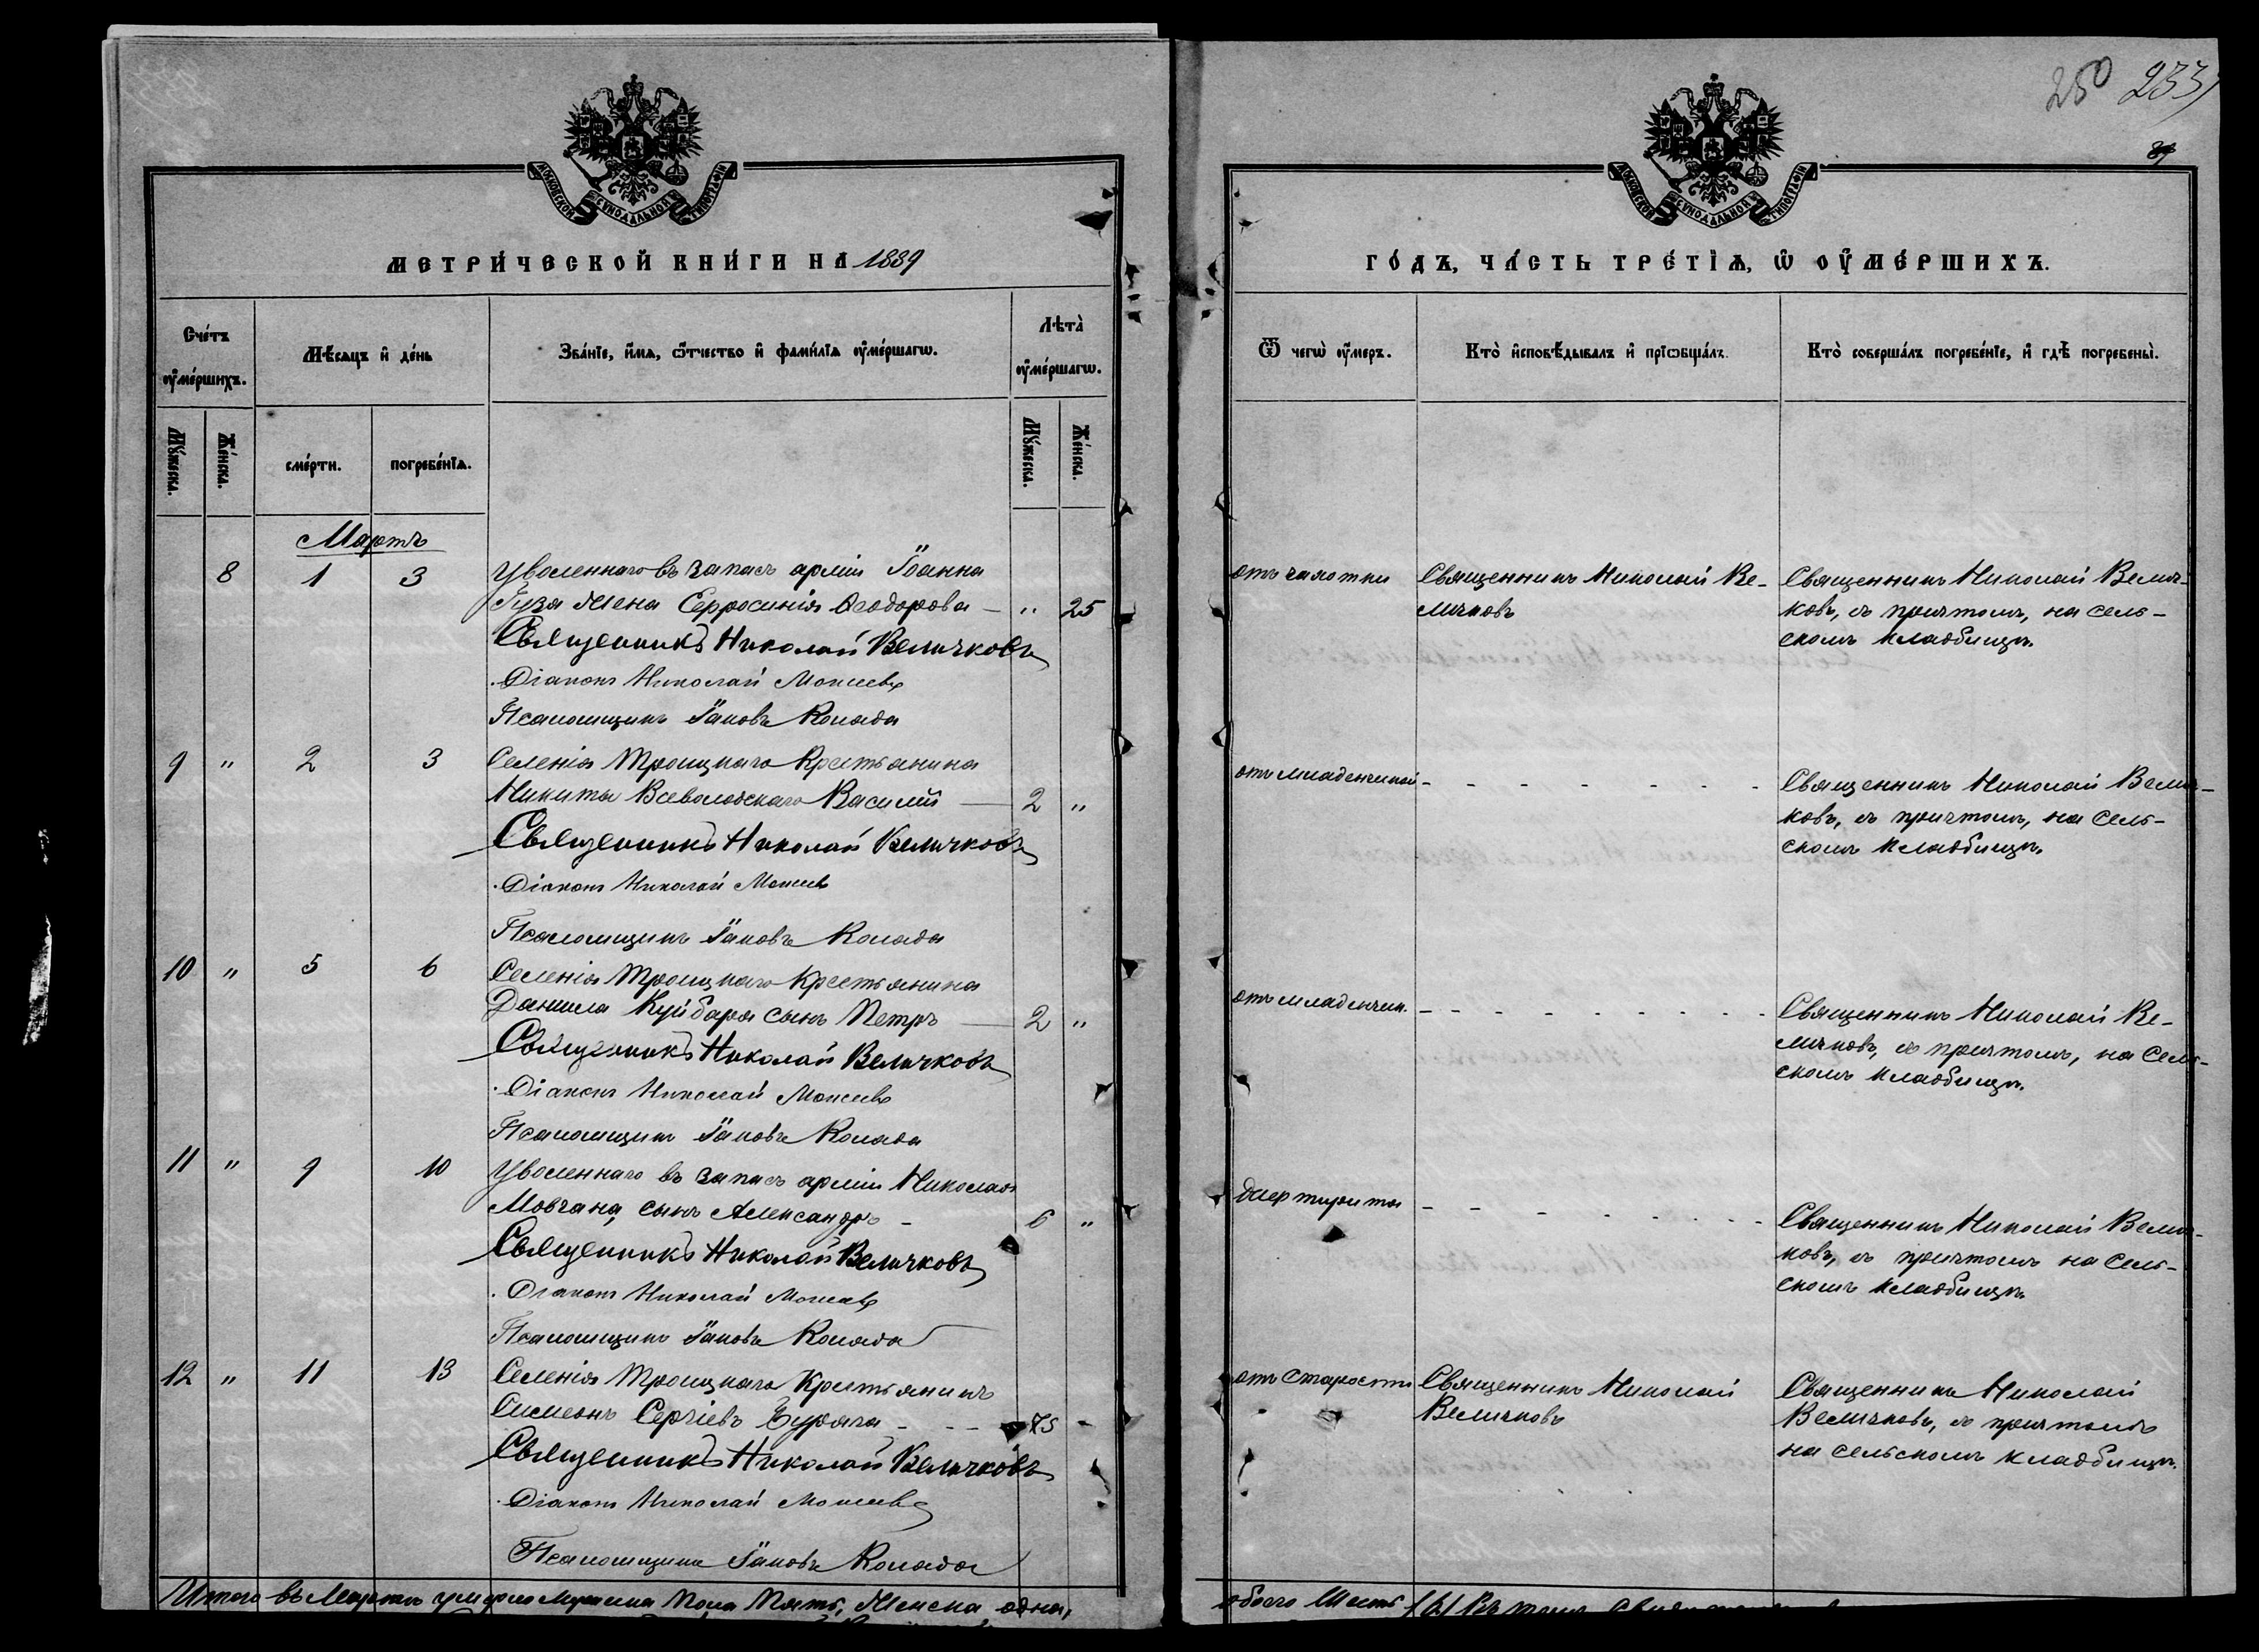 250 233
МОСКОВСКОЙ СѴНОДАЛЬНОЙ ТИПОГРАФІИ
МОСКОВСКОЙ СѴНОДАЛЬНОЙ ТИПОГРАФІИ
МЕТРИ́ЧЕСКОЙ КНИ́ГИ НА 1889
ГО́ДЪ, ЧА́СТЬ ТРЕ́ТІѦ, Ѡ҆ ОУ҆МЕ́РШИХЪ.
Сче́тъ оу҆ме́ршихъ.
Мѣ́сяцъ и҆ де́нь
Зва́нїе, и҆́мѧ, ѻ҆́тчество и҆ фами́лїѧ оу҆ме́ршагѡ.
Лѣ́та̀ оу҆ме́ршагѡ.
Ѿ чегѡ̀ оу҆́меръ.
Кто̀ и҆сповѣ́дывалъ и҆ прїѡбща́лъ.
Кто̀ соверша́лъ погребе́нїе, и҆ гдѣ̀ погребены̀.
Мꙋ́жеска.
Же́нска.
сме́рти.
погребе́нїѧ.
Мꙋ́жеска.
Же́нска.
Мартъ
8 1 3 Уволеннаго въ запасъ арміи Іоанна
Гуза жена Евфросинія Ѳеодорова — " 25
Священникъ Николай Величковъ
Діаконъ Николай
Псаломщикъ Іаковъ Колада
отъ чахотки
Священникъ Николай Ве-
личковъ
Священникъ Николай Велич-
ковъ, съ причтомъ, на сель-
скомъ кладбищѣ.
9 " 2 3 Селенія Троицкаго Крестьянина
Никиты Всеволодскаго Василій — 2 "
Священникъ Николай Величковъ
Діаконъ Николай
Псаломщикъ Іаковъ Колада
отъ младенческой - - - - - - -
Священникъ Николай Велич-
ковъ, съ причтомъ, на сель-
скомъ кладбищѣ.
10 " 5 6 Селенія Троицкаго Крестьянина
Даниила Куйбара сынъ Петръ — 2 "
Священникъ Николай Величковъ
Діаконъ Николай
Псаломщикъ Іаковъ Колада
отъ младенческ. - - - - - - - -
Священникъ Николай Ве-
личковъ, съ причтомъ, на сель-
скомъ кладбищѣ.
11 " 9 10 Уволеннаго въ запасъ арміи Николая
Мовчана, сынъ Александръ - 6 "
Священникъ Николай Величковъ
Діаконъ Николай
Псаломщикъ Іаковъ Колада
дифтирита - - - - - - - -
Священникъ Николай Велич-
ковъ, съ причтомъ на сель-
скомъ кладбищѣ.
12 " 11 13 Селенія Троицкаго Крестьянинъ
Симеонъ Сергіевъ - - - 75 -
Священникъ Николай Величковъ
Діаконъ Николай
Псаломщикъ Іаковъ Колада
отъ старости
Священникъ Николай
Величковъ
Священникъ Николай
Величковъ, съ причтомъ
на сельскомъ кладбищѣ.
Итого въ Мартѣ умерло мужеска пола пять, женска одна,
обоего шесть (6)